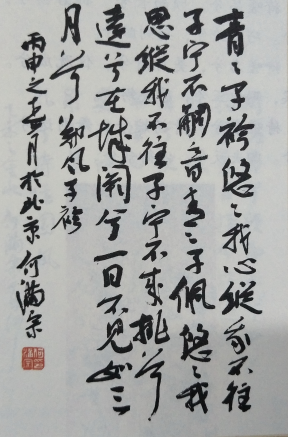 青〻子衿悠〻我心縱我不往
子宁不嗣音青〻子佩悠〻我
思縱我不往子宁不來挑兮
達兮在城闕兮一日不見如三
月兮 鄭風子衿
丙申之月於北京何滿宗